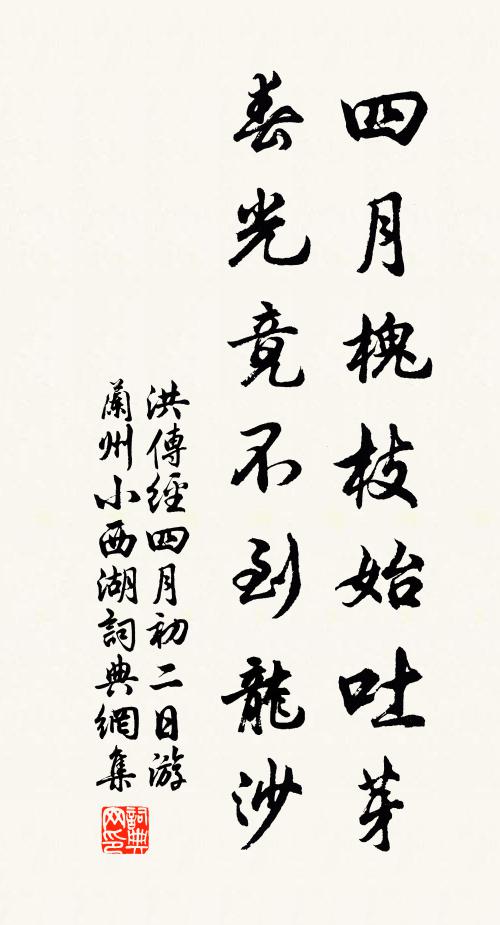 四月槐枝始吐芽
春光竟不到龍沙
洪傳經四月初二日游
蘭州小西湖詞典網集
詞典
网印